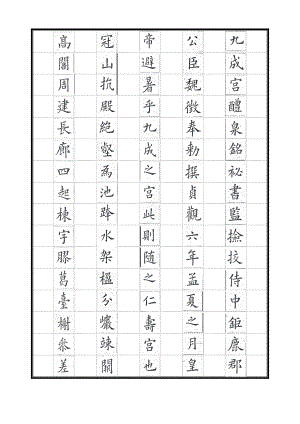 九成宮醴泉銘祕書監撿挍侍中鉅鹿郡
公臣魏徵奉勅撰貞觀六年孟夏之月皇
帝避暑乎九成之宮此則隨之仁壽宮也
冠山抗殿絶壑為池跨水架楹分巖竦闕
高閣周建長廊四起棟宇膠葛臺榭叅差